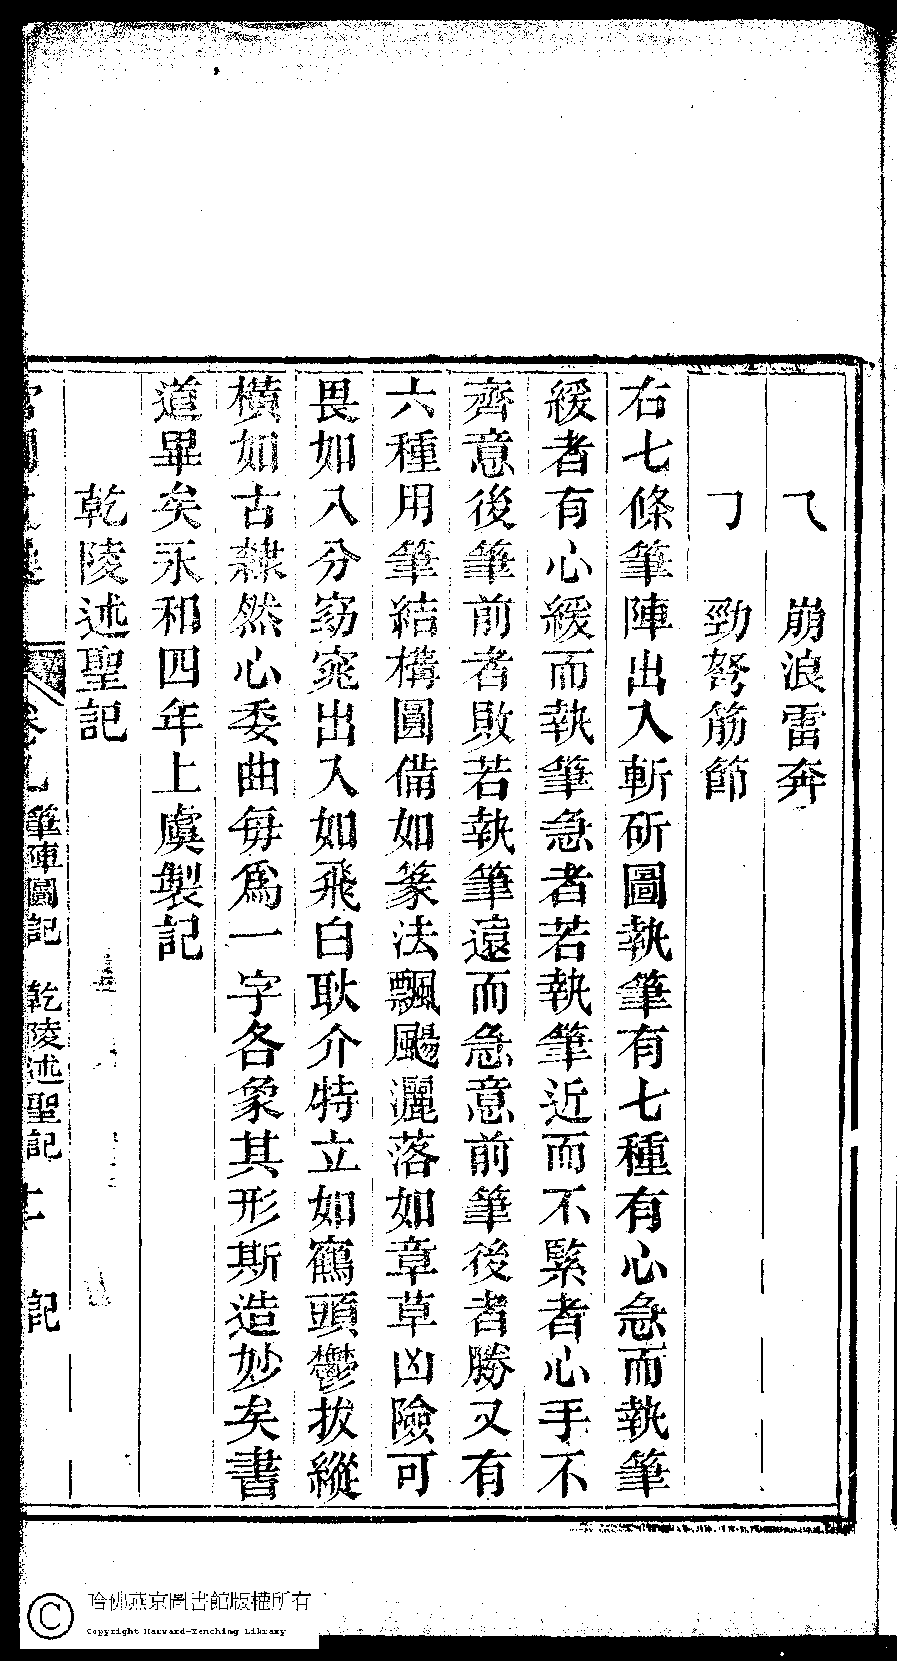 乁　崩浪雷奔
㇆　勁弩筋節
右七條筆陣出入斬斫圖執筆有七種有心急而執筆
緩者有心緩而執筆急者若執筆近而不緊者心手不
齊意後筆前者敗若執筆遠而急意前筆後者勝又有
六種用筆結構圓備如篆法飄颺灑落如章草凶險可
畏如八分窈窕出入如飛白耿介特立如鶴頭鬱拔縱
橫如古隸然心委曲每爲一字各象其形斯造妙矣書
道畢矣永和四年上虞製記
乾陵述聖記
卷九 筆陣圖記 乾陵述聖記 記
哈佛燕京圖書館版權所有
Copyright Harvard-Yenching Library